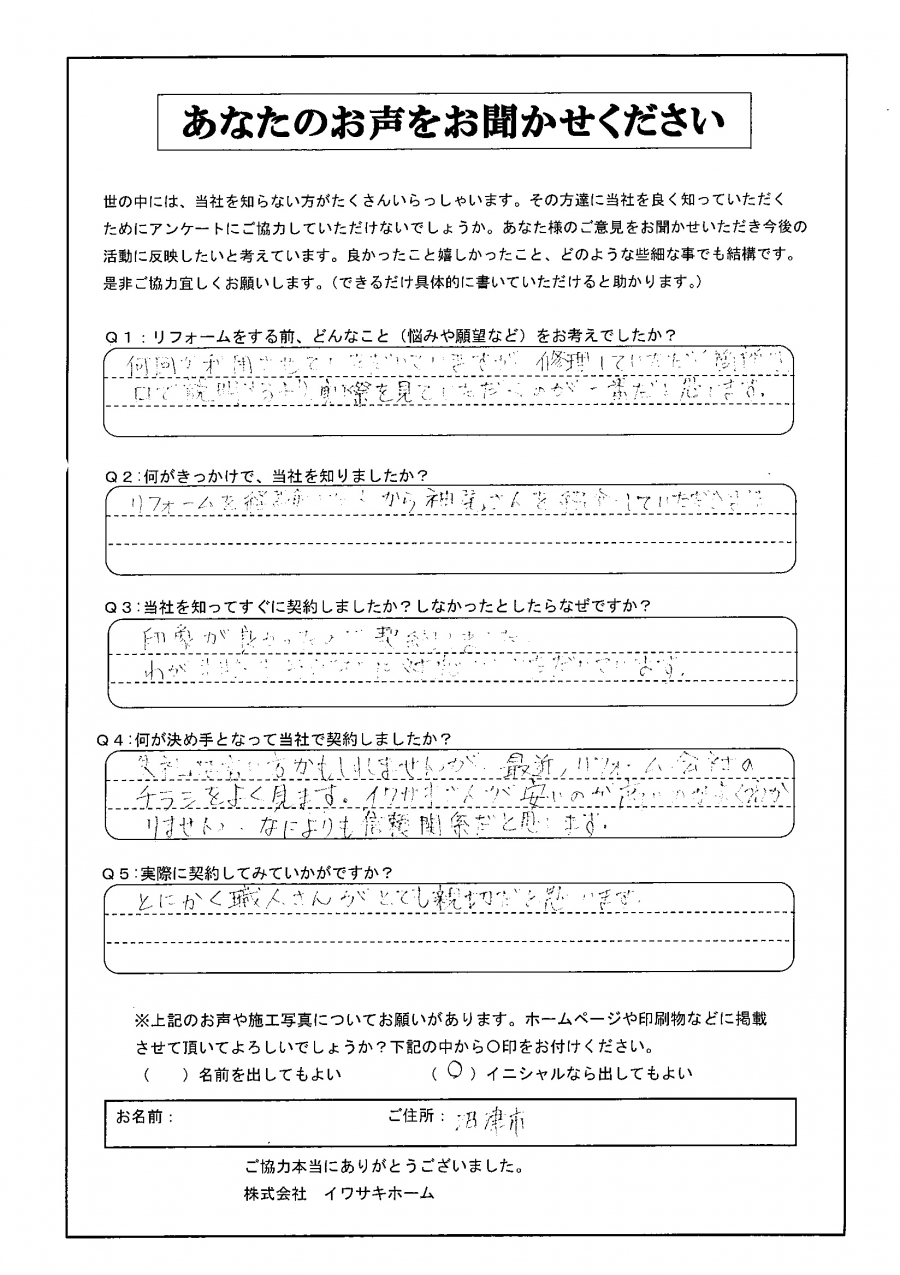 あなたのお声をお聞かせください
世の中には、当社を知らない方がたくさんいらっしゃいます。その方達に当社を良く知っていただく
ためにアンケートにご協力していただけないでしょうか。あなた様のご意見をお聞かせいただき今後の
活動に反映したいと考えています。良かったこと嬉しかったこと、どのような些細な事でも結構です。
是非ご協力宜しくお願いします。（できるだけ具体的に書いていただけると助かります。）
Q1：リフォームをする前、どんなこと（悩みや願望など）をお考えでしたか？
何回か利用させていただいていますが、修理していただく箇所を
口で説明するより実際を見ていただくのが一番だと思います。
Q2：何がきっかけで、当社を知りましたか？
リフォームを経験した人から神尾さんを紹介していただきました
Q3：当社を知ってすぐに契約しましたか？しなかったとしたらなぜですか？
印象が良かったので契約しました。
わが 対応していただいています。
Q4：何が決め手となって当社で契約しましたか？
失礼な言い方かもしれませんが、最近リフォーム会社の
チラシをよく見ます。イワサキさんが安いのか高いのかよく分か
りません。なによりも信頼関係だと思います。
Q5：実際に契約してみていかがですか？
とにかく職人さんがとても親切だと思います。
※上記のお声や施工写真についてお願いがあります。ホームページや印刷物などに掲載
させて頂いてよろしいでしょうか？下記の中から〇印をお付けください。
（　　）名前を出してもよい　　（〇）イニシャルなら出してもよい
お名前：　　ご住所：沼津市
ご協力本当にありがとうございました。
株式会社　イワサキホーム